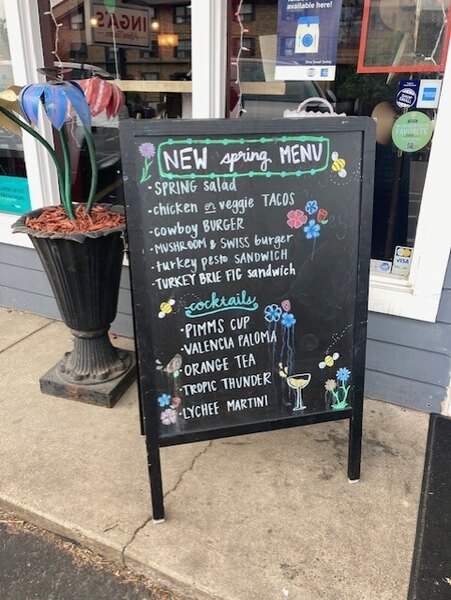 INGA'S
available here!
FAVORITE
VISA
NEW spring MENU
-SPRING salad
-chicken or veggie TACOS
-cowboy BURGER
-MUSHROOM & SWISS burger
-turkey pesto SANDWICH
-TURKEY BRIE FIG sandwich
cocktails
-PIMMS CUP
-VALENCIA PALOMA
-ORANGE TEA
-TROPIC THUNDER
-LYCHEE MARTINI